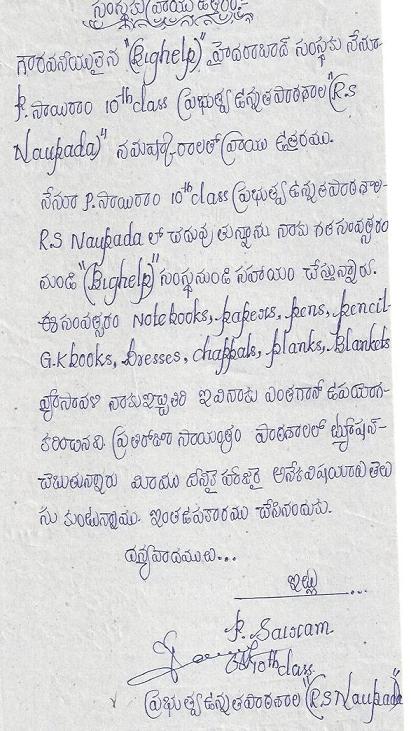 సంస్థకు వ్రాయు ఉత్తరం:-
గౌరవనీయులైన "(Bighelp)" హైదరాబాద్ సంస్థకు నేనూ
P. సాయిరాం 10th class ప్రభుత్వ ఉన్నతపాఠశాల "(R.S
Naupada)" నమస్కారాలతో వ్రాయు ఉత్తరము.
నేనూ P. సాయిరాం 10th class ప్రభుత్వ ఉన్నతపాఠశాల-
R.S Naupada లో చదువు తున్నాను నాకు గతసంవత్సరం
నుండి "(Bighelp)" సంస్థనుండి సహాయం చేస్తున్నారు.
ఈసంవత్సరం Notebooks, papers, pens, pencil-
G.K books, Dresses, chappals, planks, Blankets
నాకుఇచ్చితిరి ఇవినాకు ఎంతగానో ఉపయోగ-
కరించినవి ప్రతిరోజూ సాయంత్రం పాఠశాలలో ట్యూషన్-
చెబుతున్నారు మేము దీనికి హాజరై అనేకవిషయాలు తెలు
సు కుంటున్నాము. ఇంతఉపకారము చేసినందుకు.
ధన్యవాదములు...
ఇట్లు
P. Sairam
10th class.
ప్రభుత్వఉన్నతపాఠశాల "(R.S Naupada)"